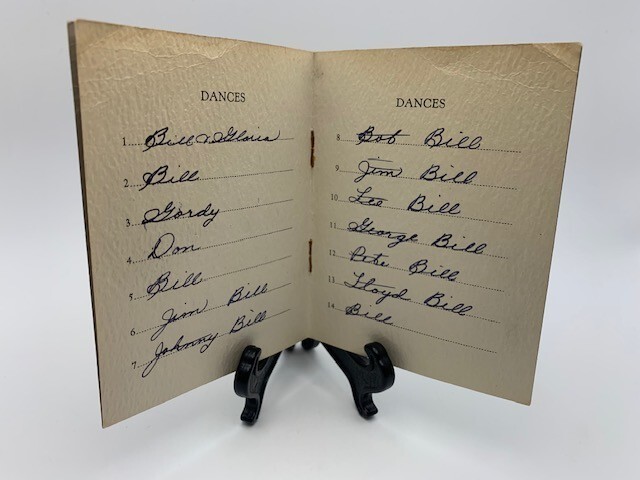 DANCES
1. Bill & Gloria
2. Bill
3. Gordy
4. Don
5. Bill
6. Jim Bill
7. Johnny Bill
DANCES
8. Bob Bill
9. Jim Bill
10. Lee Bill
11. George Bill
12. Pete Bill
13. Lloyd Bill
14. Bill